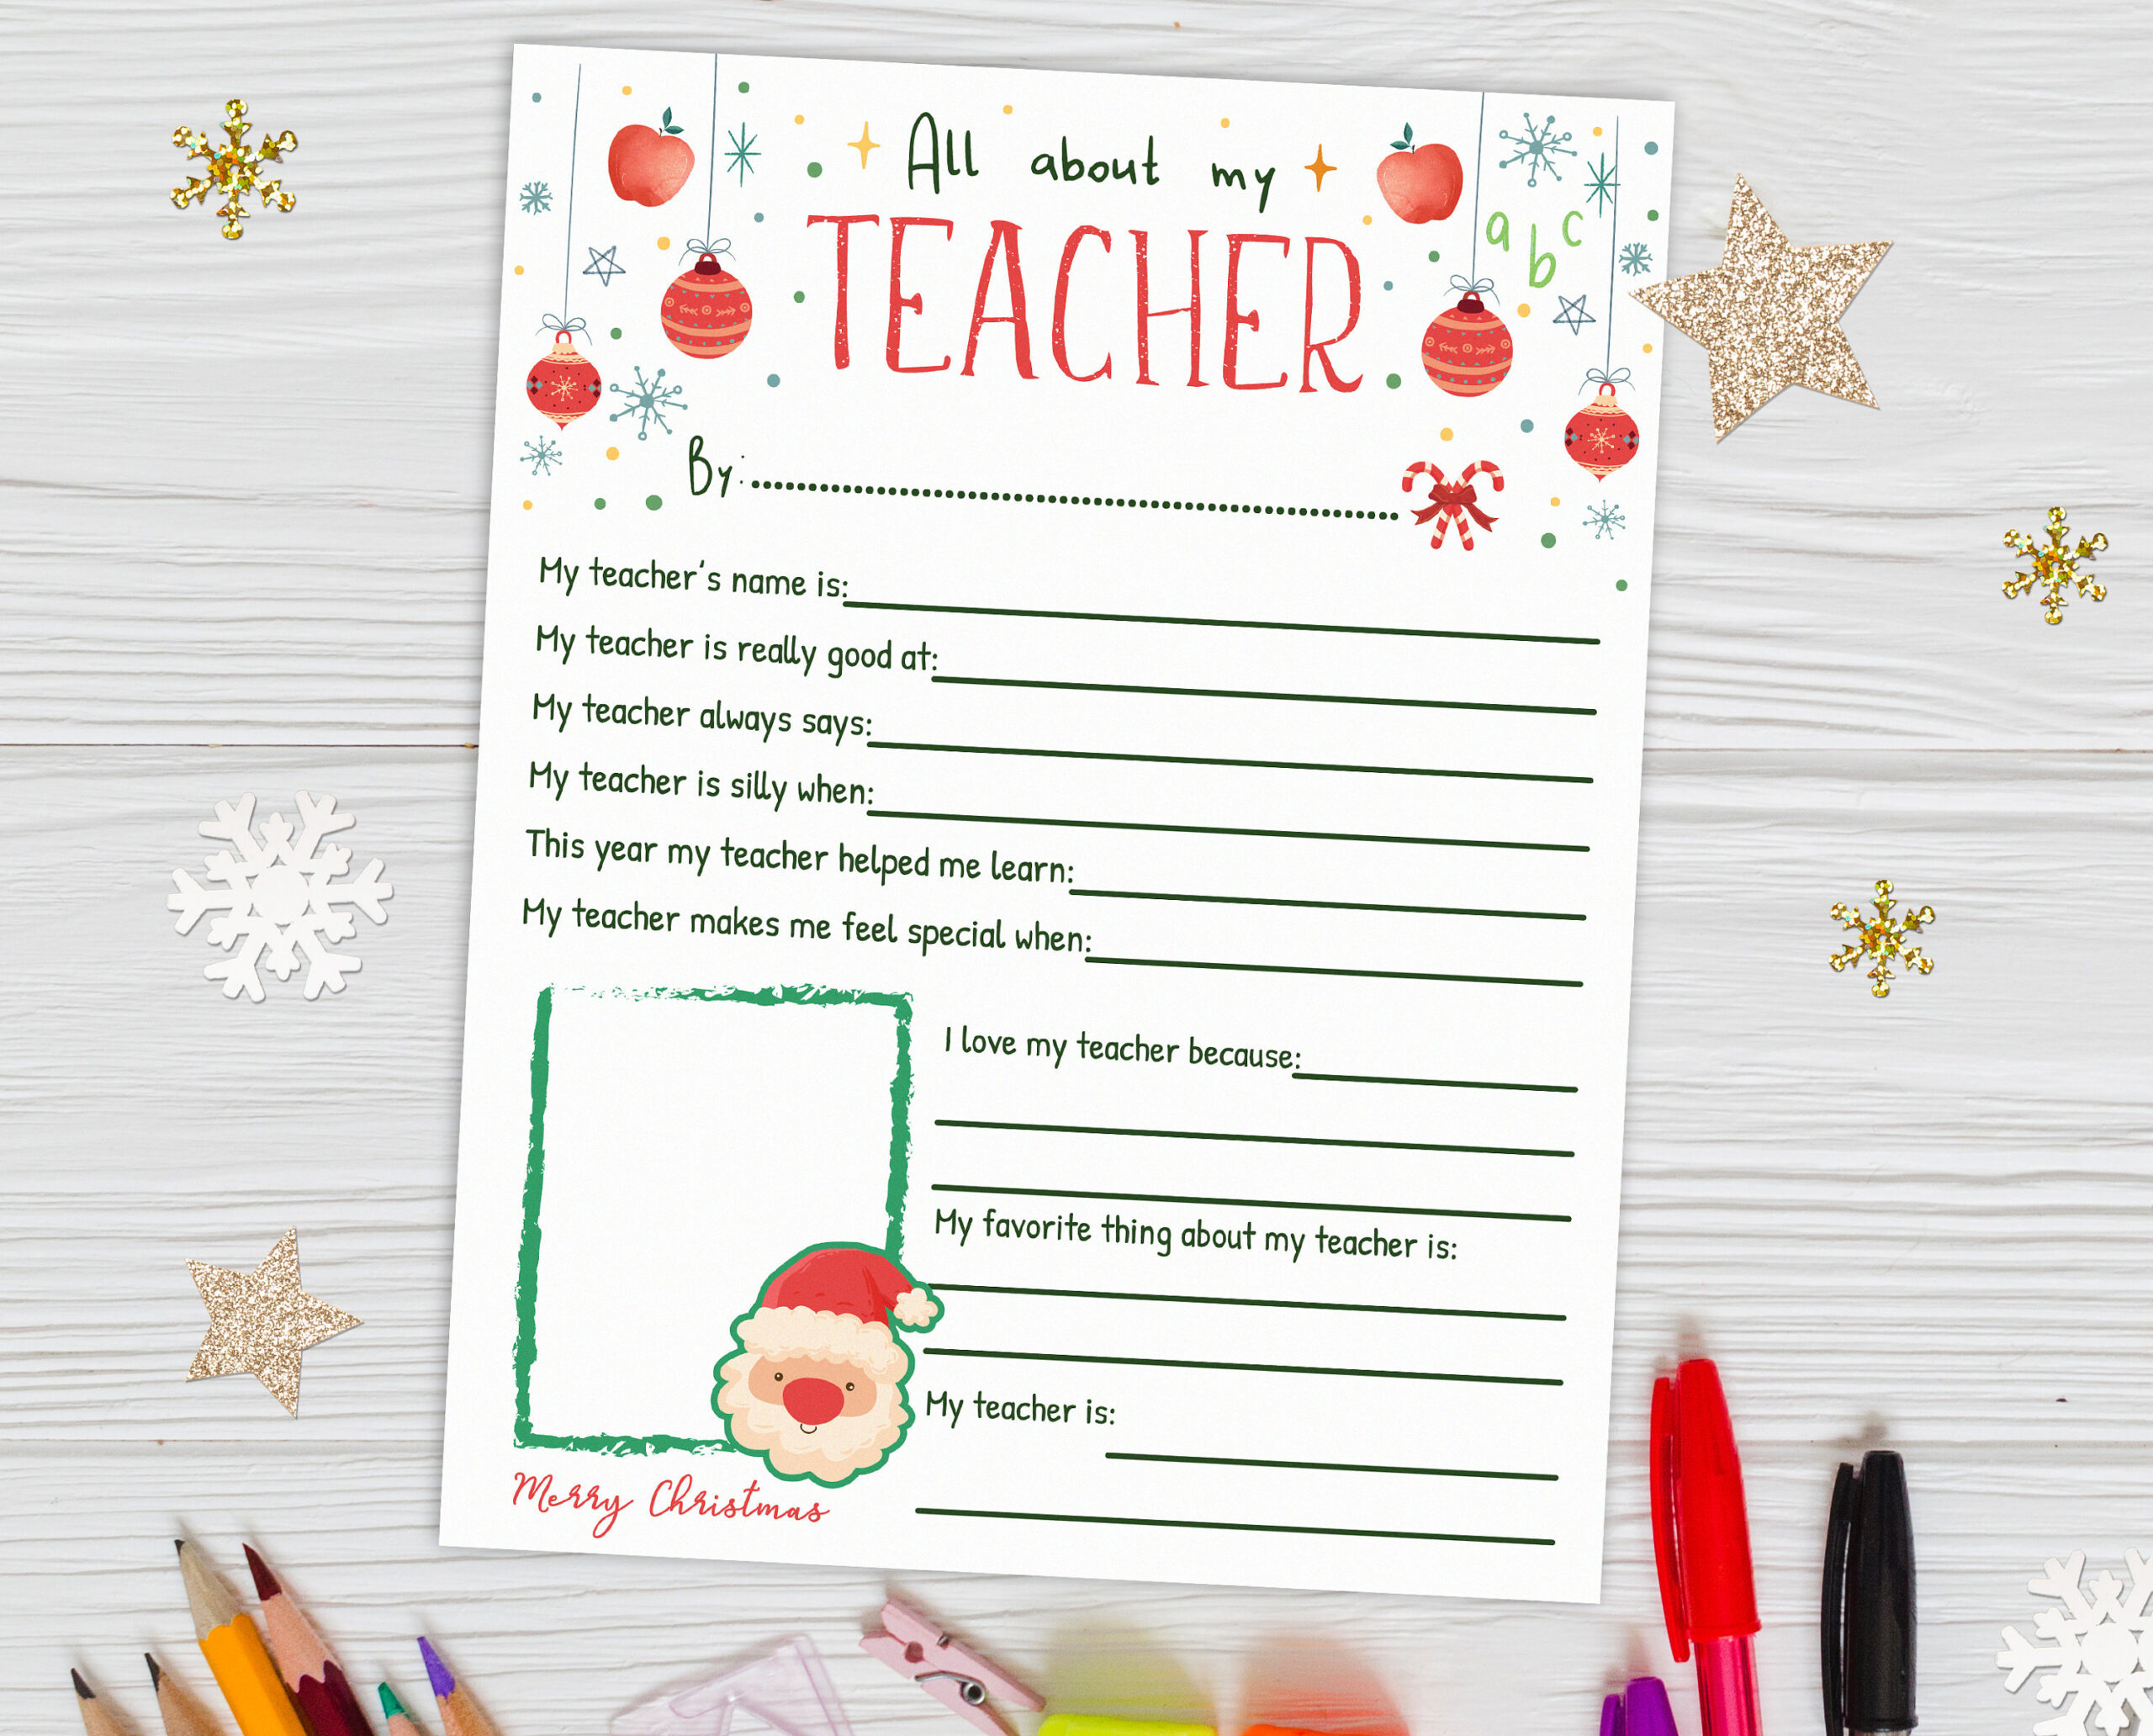 All about my
a b c
TEACHER
By:
My teacher's name is:
My teacher is really good at:
My teacher always says:
My teacher is silly when:
This year my teacher helped me learn:
My teacher makes me feel special when:
I love my teacher because:
My favorite thing about my teacher is:
My teacher is:
Merry Christmas